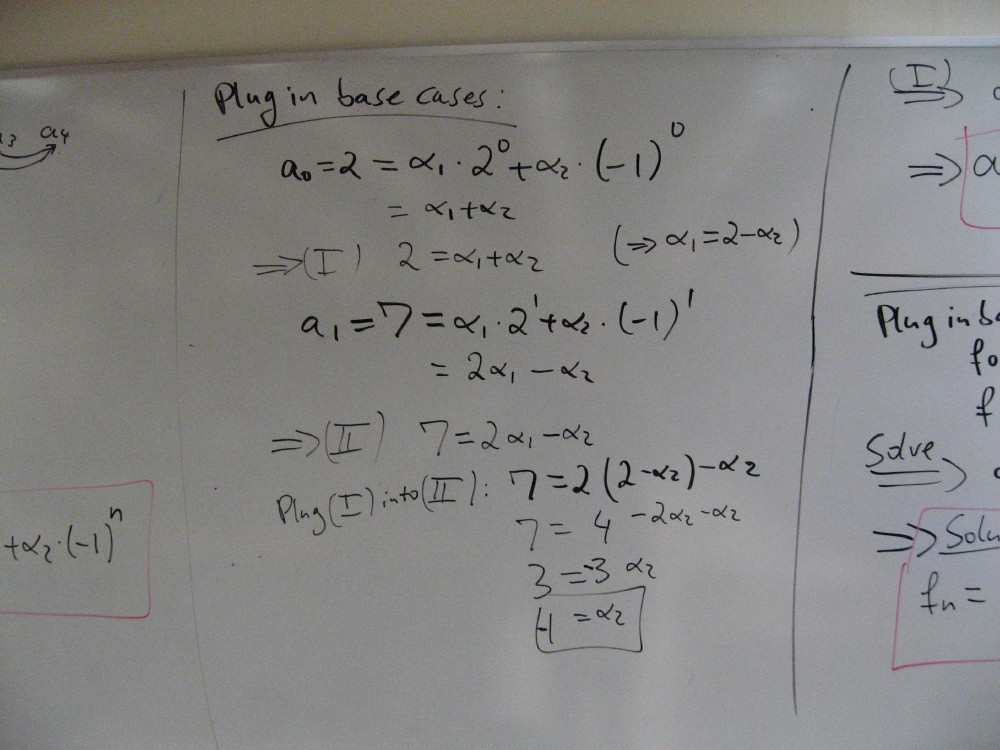 a₃ a₄
+α₂·(-1)ⁿ
Plug in base cases:
a₀=2 = α₁·2⁰+α₂·(-1)⁰
= α₁+α₂
⇒(I) 2 =α₁+α₂ (⇒ α₁=2-α₂)
a₁=7=α₁·2¹+α₂·(-1)¹
= 2α₁-α₂
⇒(II) 7=2α₁-α₂
Plug(I) into(II): 7=2(2-α₂)-α₂
7= 4 -2α₂-α₂
3 =-3 α₂
-1 =α₂
(I)
⇒
⇒ a
Plug in ba
f₀
f
Solve
⇒
⇒ Solu
fₙ =